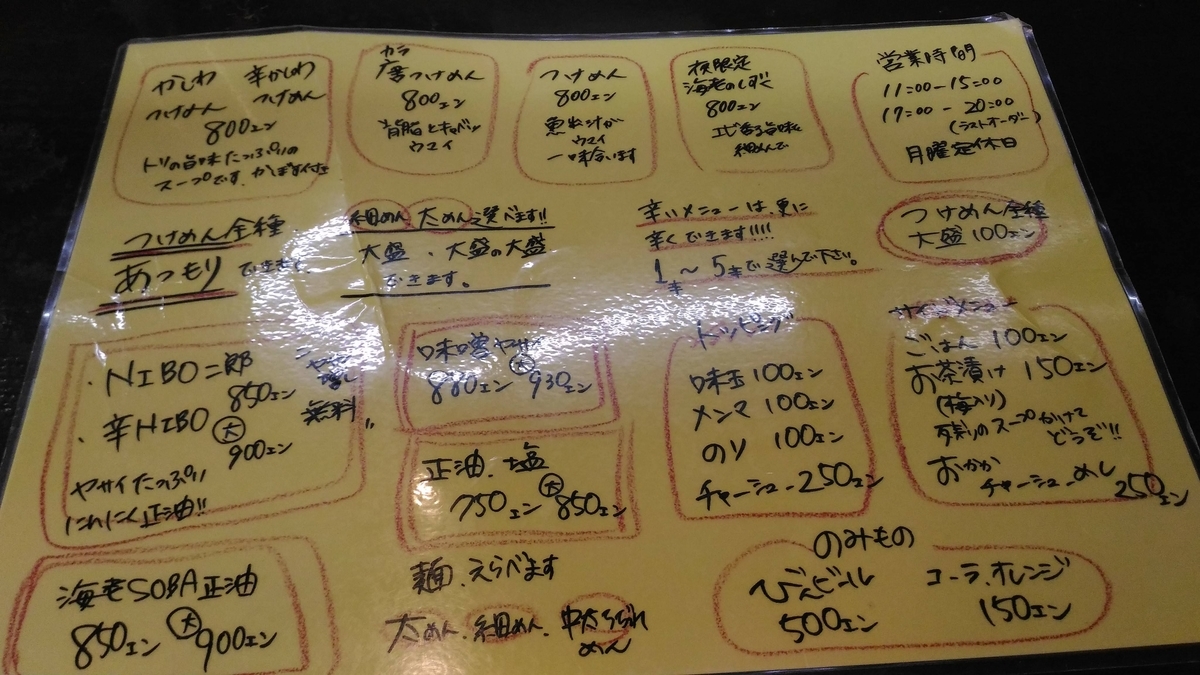 かしわ 辛かしわ
つけめん つけめん
800エン
トリの旨味たっぷりの
スープです。かしわ
カラ
唐つけめん
800エン
背脂とキャベツ
ウマイ
つけめん
800エン
魚出汁が
ウマイ
一味合います
夜限定
海老のしずく
800エン
海老香る旨味を
細めんで
営業時間
11:00-15:00
17:00-20:00
(ラストオーダー)
月曜定休日
つけめん全種
あつもりできます
細めん、太めん選べます!!
大盛、大盛の大盛
できます。
辛いメニューは、更に
辛くできます!!!!
1辛〜5辛で選んで下さい。
つけめん全種
大盛100エン
・NIBO二郎
850エン
・辛NIBO 大
900エン
ヤサイ
増し
無料!!
ヤサイたっぷり
にんにく正油!!
味噌ヤサイ
880エン 大 930エン
正油、塩
750エン 大 850エン
トッピング
味玉 100エン
メンマ 100エン
のり 100エン
チャーシュー 250エン
サイドメニュー
ごはん 100エン
お茶漬け 150エン
(梅入り)
残りのスープかけて
どうぞ!!
おかか
チャーシューめし
250エン
海老SOBA正油
850エン 大 900エン
麺、えらべます
太めん、細めん、中太ちぢれ
めん
のみもの
びんビール
500エン
コーラ、オレンジ
150エン